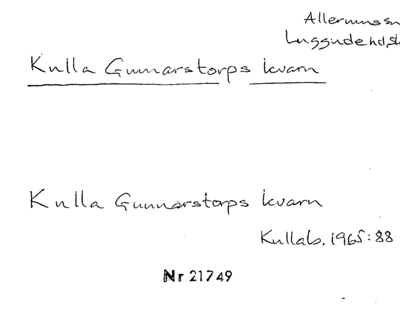 Allerumss
Luggude hd, Sk
Kulla Gunnarstorps kvarn
Kulla Gunnarstorps kvarn
Kullab. 1965:88
Nr 21749